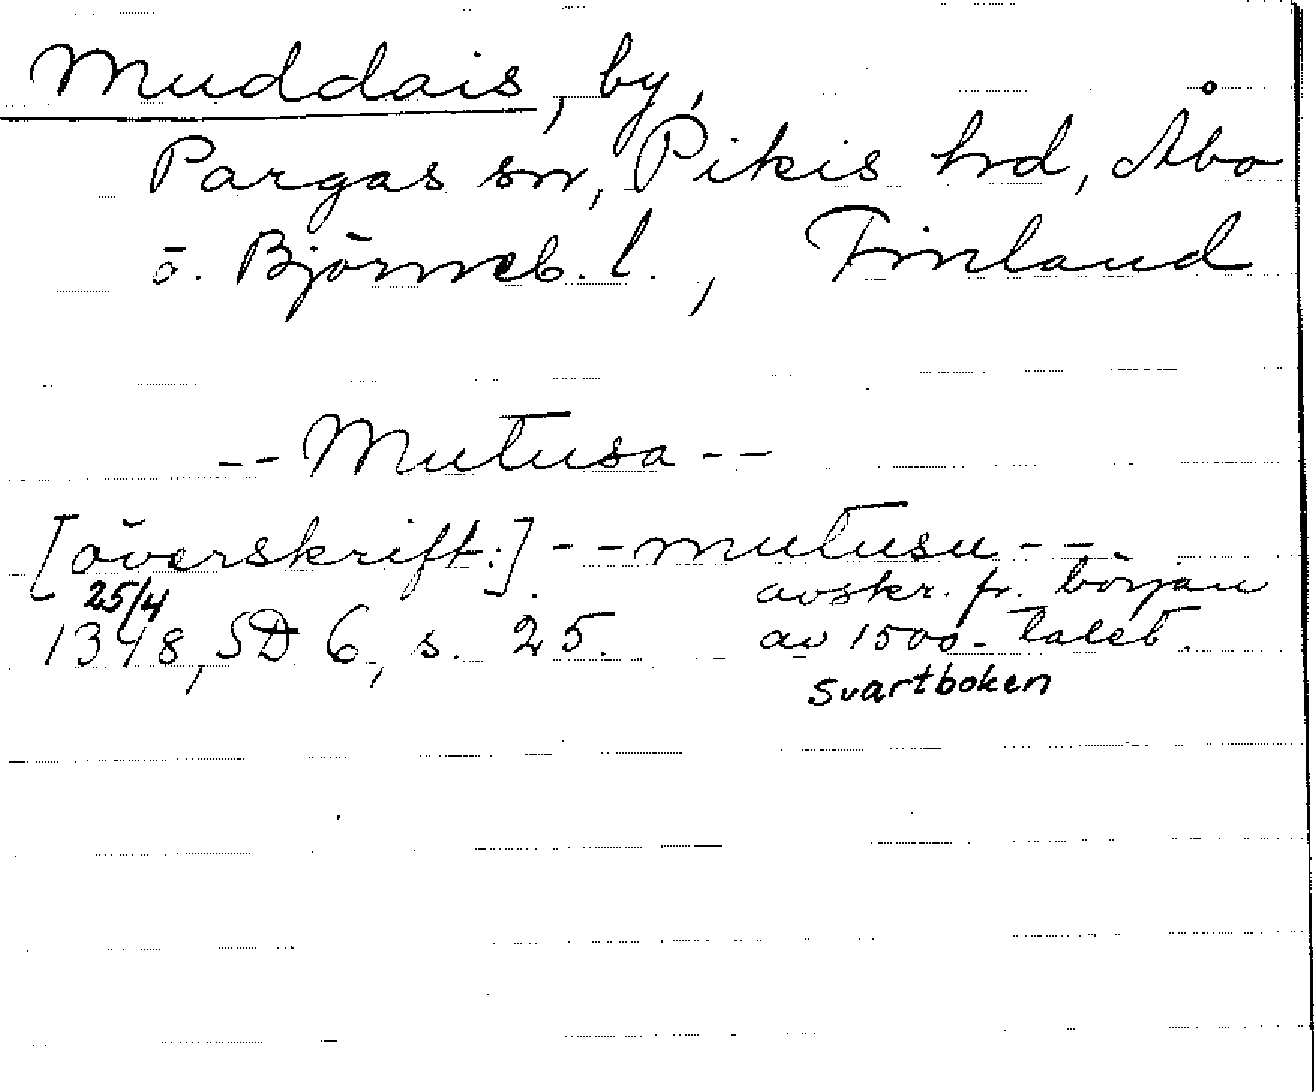 Muddais, by,
Pargas sn, Pikis hrd, Åbo
o. Björneb. l., Finland
-- Mutusa --
[överskrift:] -- mutusu --
25/4
avskr. fr. början
1348, SD 6, s. 25.
av 1500-talet.
svartboken